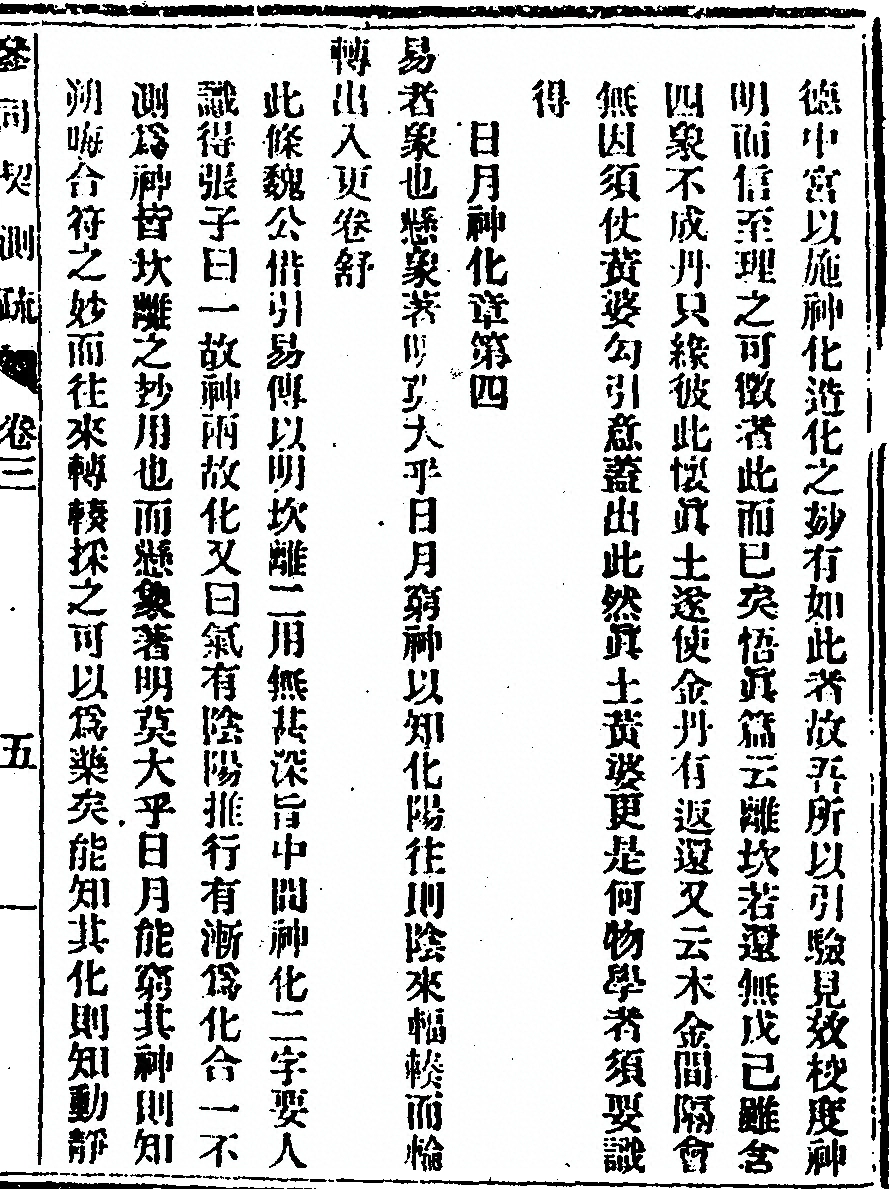 德中宮以施神化造化之妙有如此者故吾所以引驗見效校度神
明而信至理之可徵者此而已矣悟眞篇云離坎若還無戊己雖含
四象不成丹只緣彼此懷眞土遂使金丹有返還又云木金間隔會
無因須仗黃婆勾引意蓋出此然眞土黃婆更是何物學者須要識
得
日月神化章第四
易者象也懸象著明莫大乎日月窮神以知化陽往則陰來輻輳而輪
轉出入更卷舒
此條魏公借引易傳以明坎離二用無甚深旨中間神化二字要人
識得張子曰一故神兩故化又曰氣有陰陽推行有漸爲化合一不
測爲神皆坎離之妙用也而懸象著明莫大乎日月能窮其神則知
朔晦合符之妙而往來轉輳採之可以爲藥矣能知其化則知動靜
參同契測疏 卷三 五